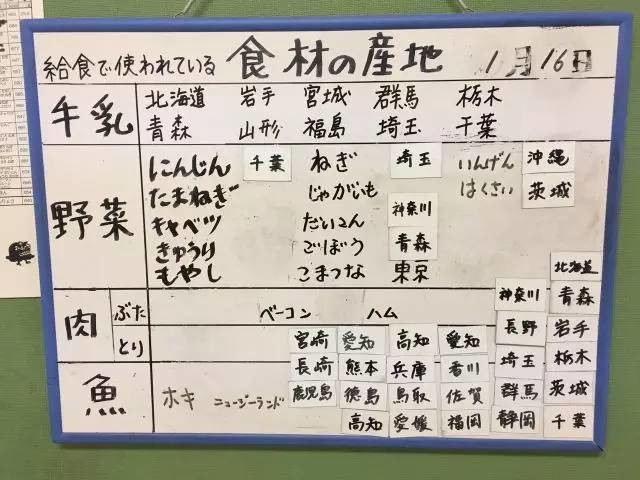 給食で使われている 食材の産地 1月16日
牛乳 北海道 岩手 宮城 群馬 栃木
青森 山形 福島 埼玉 千葉
野菜
にんじん 千葉 ねぎ 埼玉 いんげん 沖縄
たまねぎ じゃがいも はくさい 茨城
キャベツ だいこん 神奈川
きゅうり ごぼう 青森
もやし こまつな 東京
北海道
神奈川 青森
肉 ぶた ベーコン ハム
とり
長野 岩手
宮崎 愛知 高知 愛知
埼玉 栃木
長崎 熊本 兵庫 香川
群馬 茨城
鹿児島 徳島 鳥取 佐賀
静岡 千葉
高知 愛媛 福岡
魚 ホキ ニュージーランド